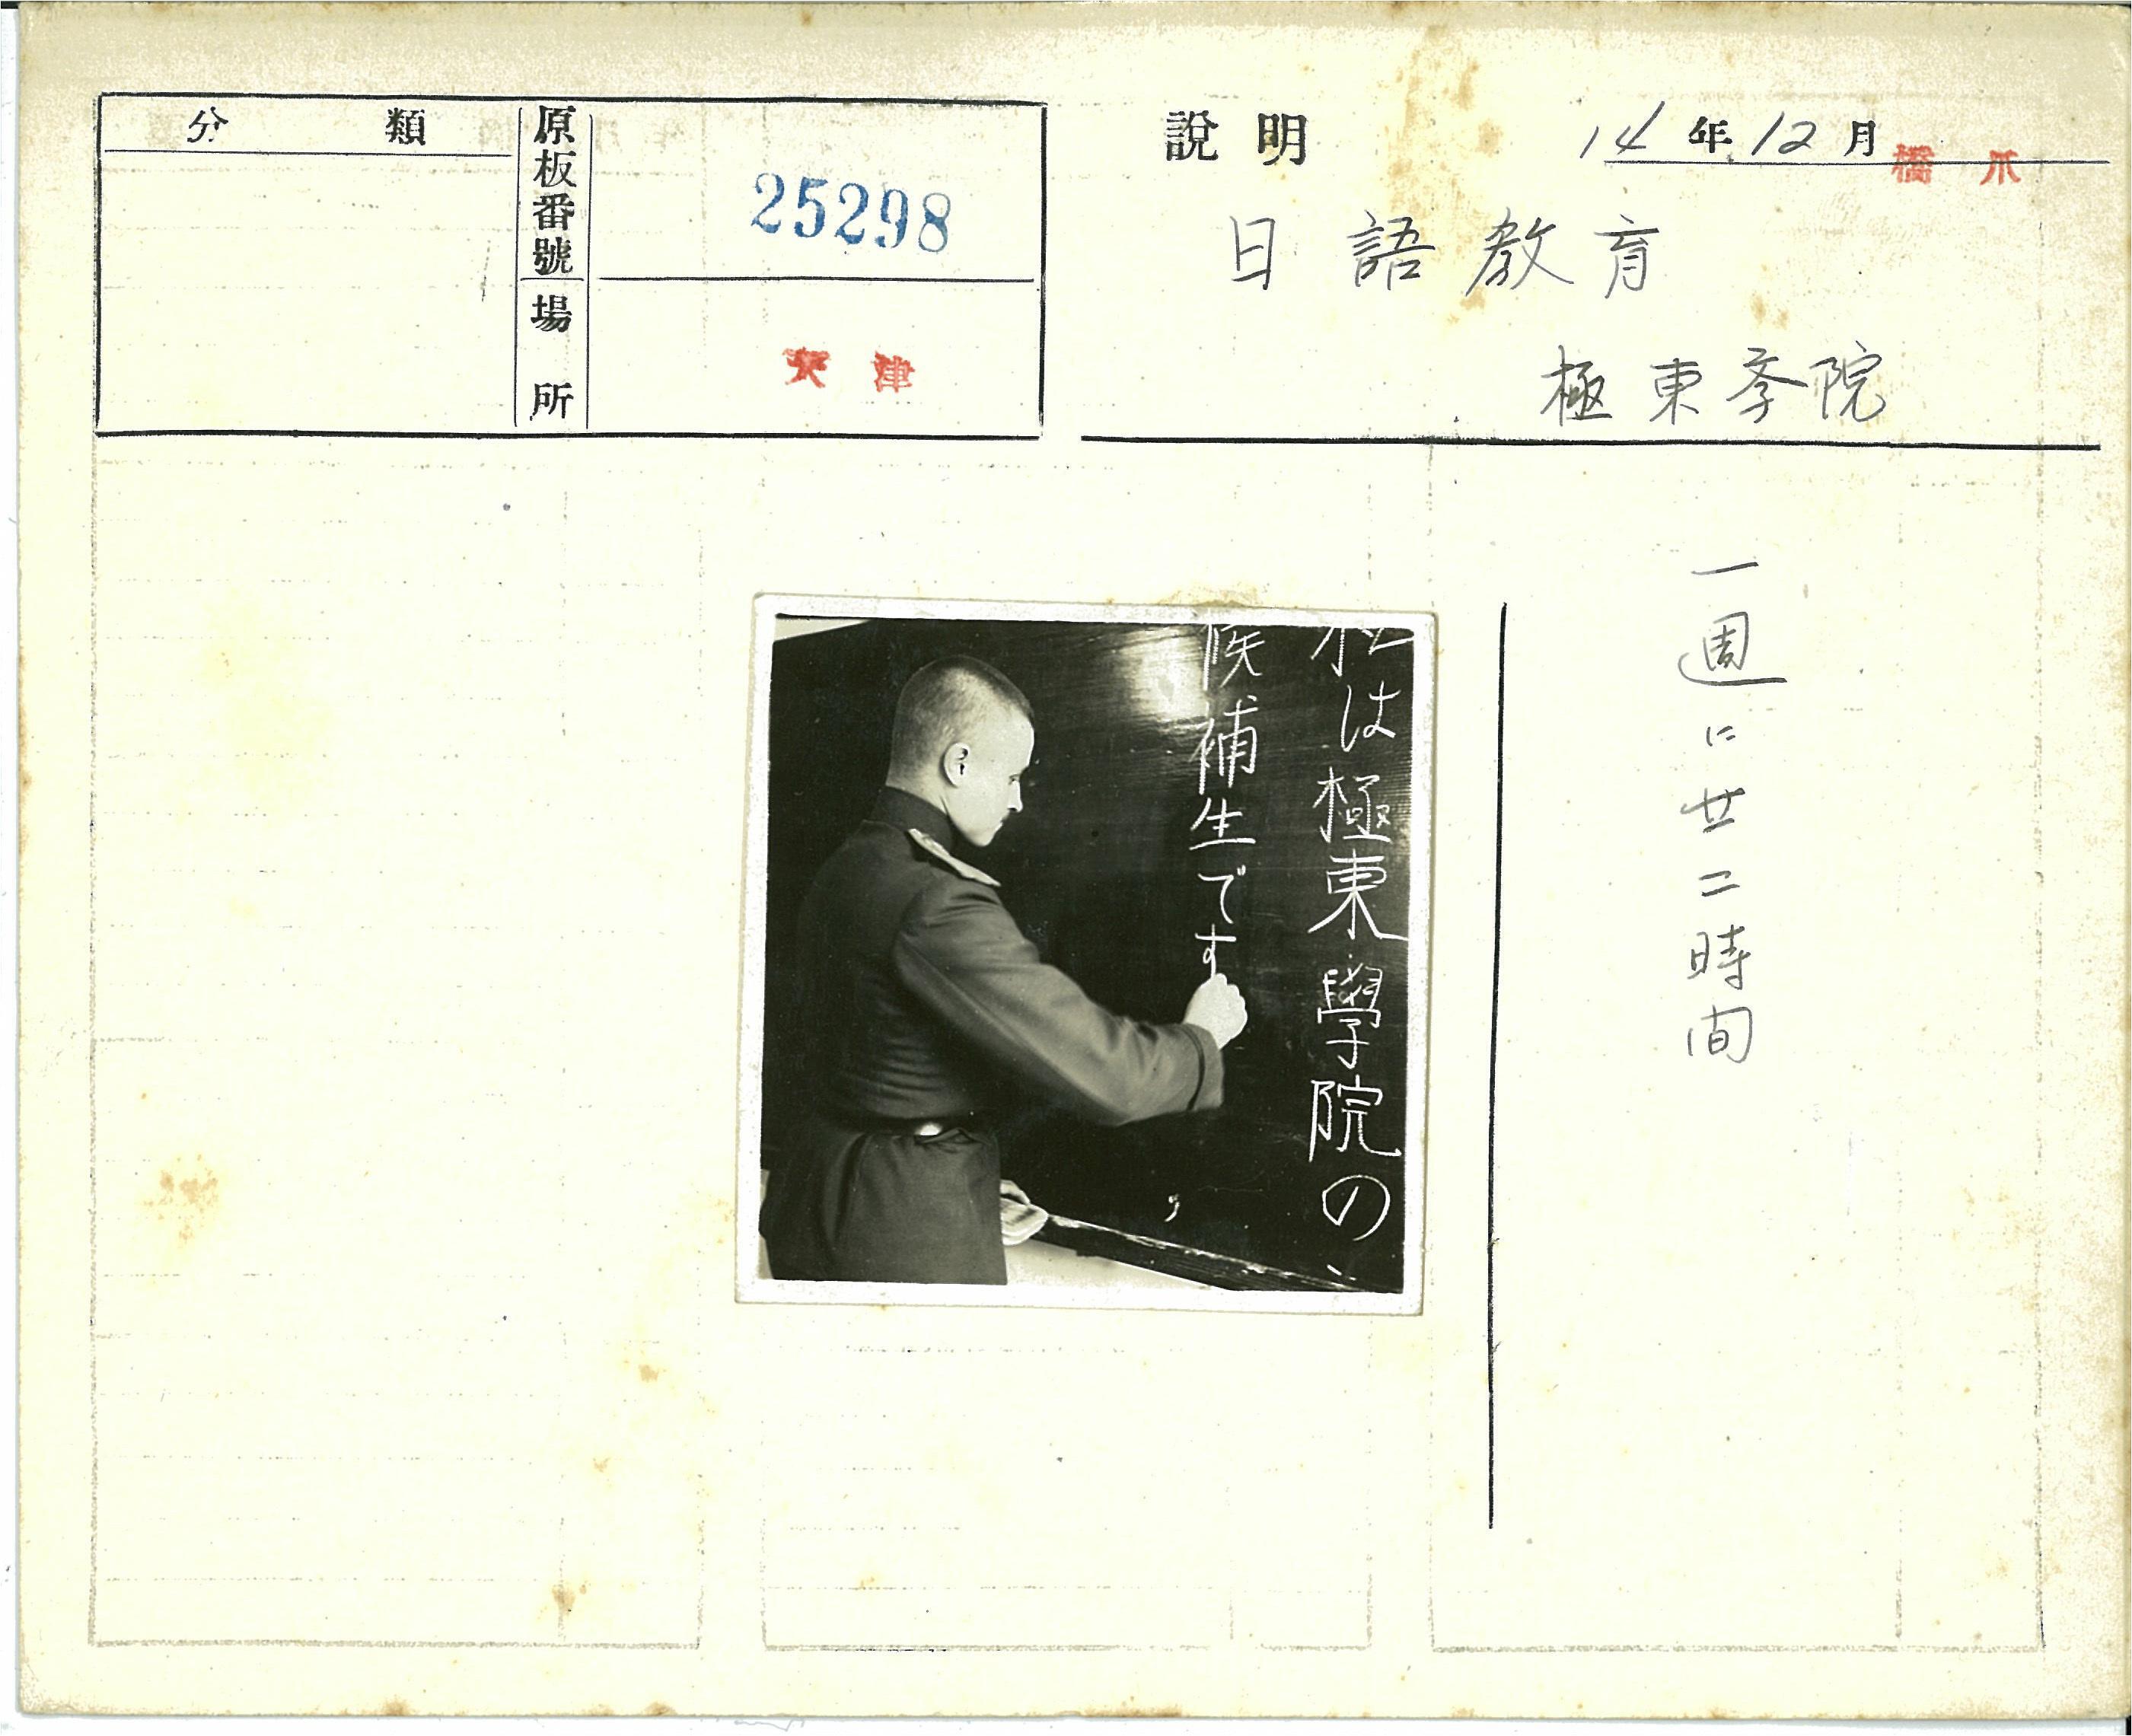 分類
原板番號
25298
場所
天津
說明
14年12月
橋爪
日語教育
極東学院
一週に廿二時間
私は極東學院の
候補生です